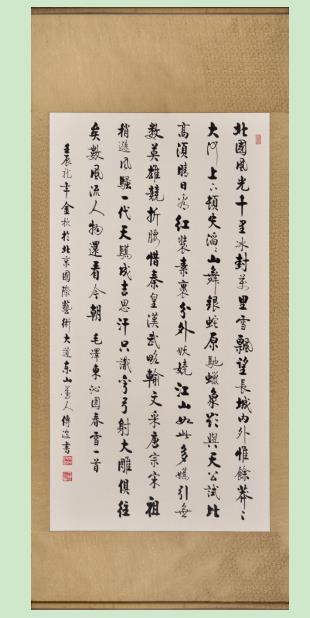 北國風光千里冰封萬里雪飄望長城內外惟餘莽々
大河上下頓失滔々山舞銀蛇原馳蠟象欲與天公試比
高須晴日看紅裝素裹分外妖嬈江山如此多嬌引無
數英雄競折腰惜秦皇漢武略輸文采唐宗宋祖
稍遜風騷一代天驕成吉思汗只識彎弓射大雕俱往
矣數風流人物還看今朝 毛澤東沁園春雪一首
壬辰 年金秋於北京國際藝術大道東山 人傅 書